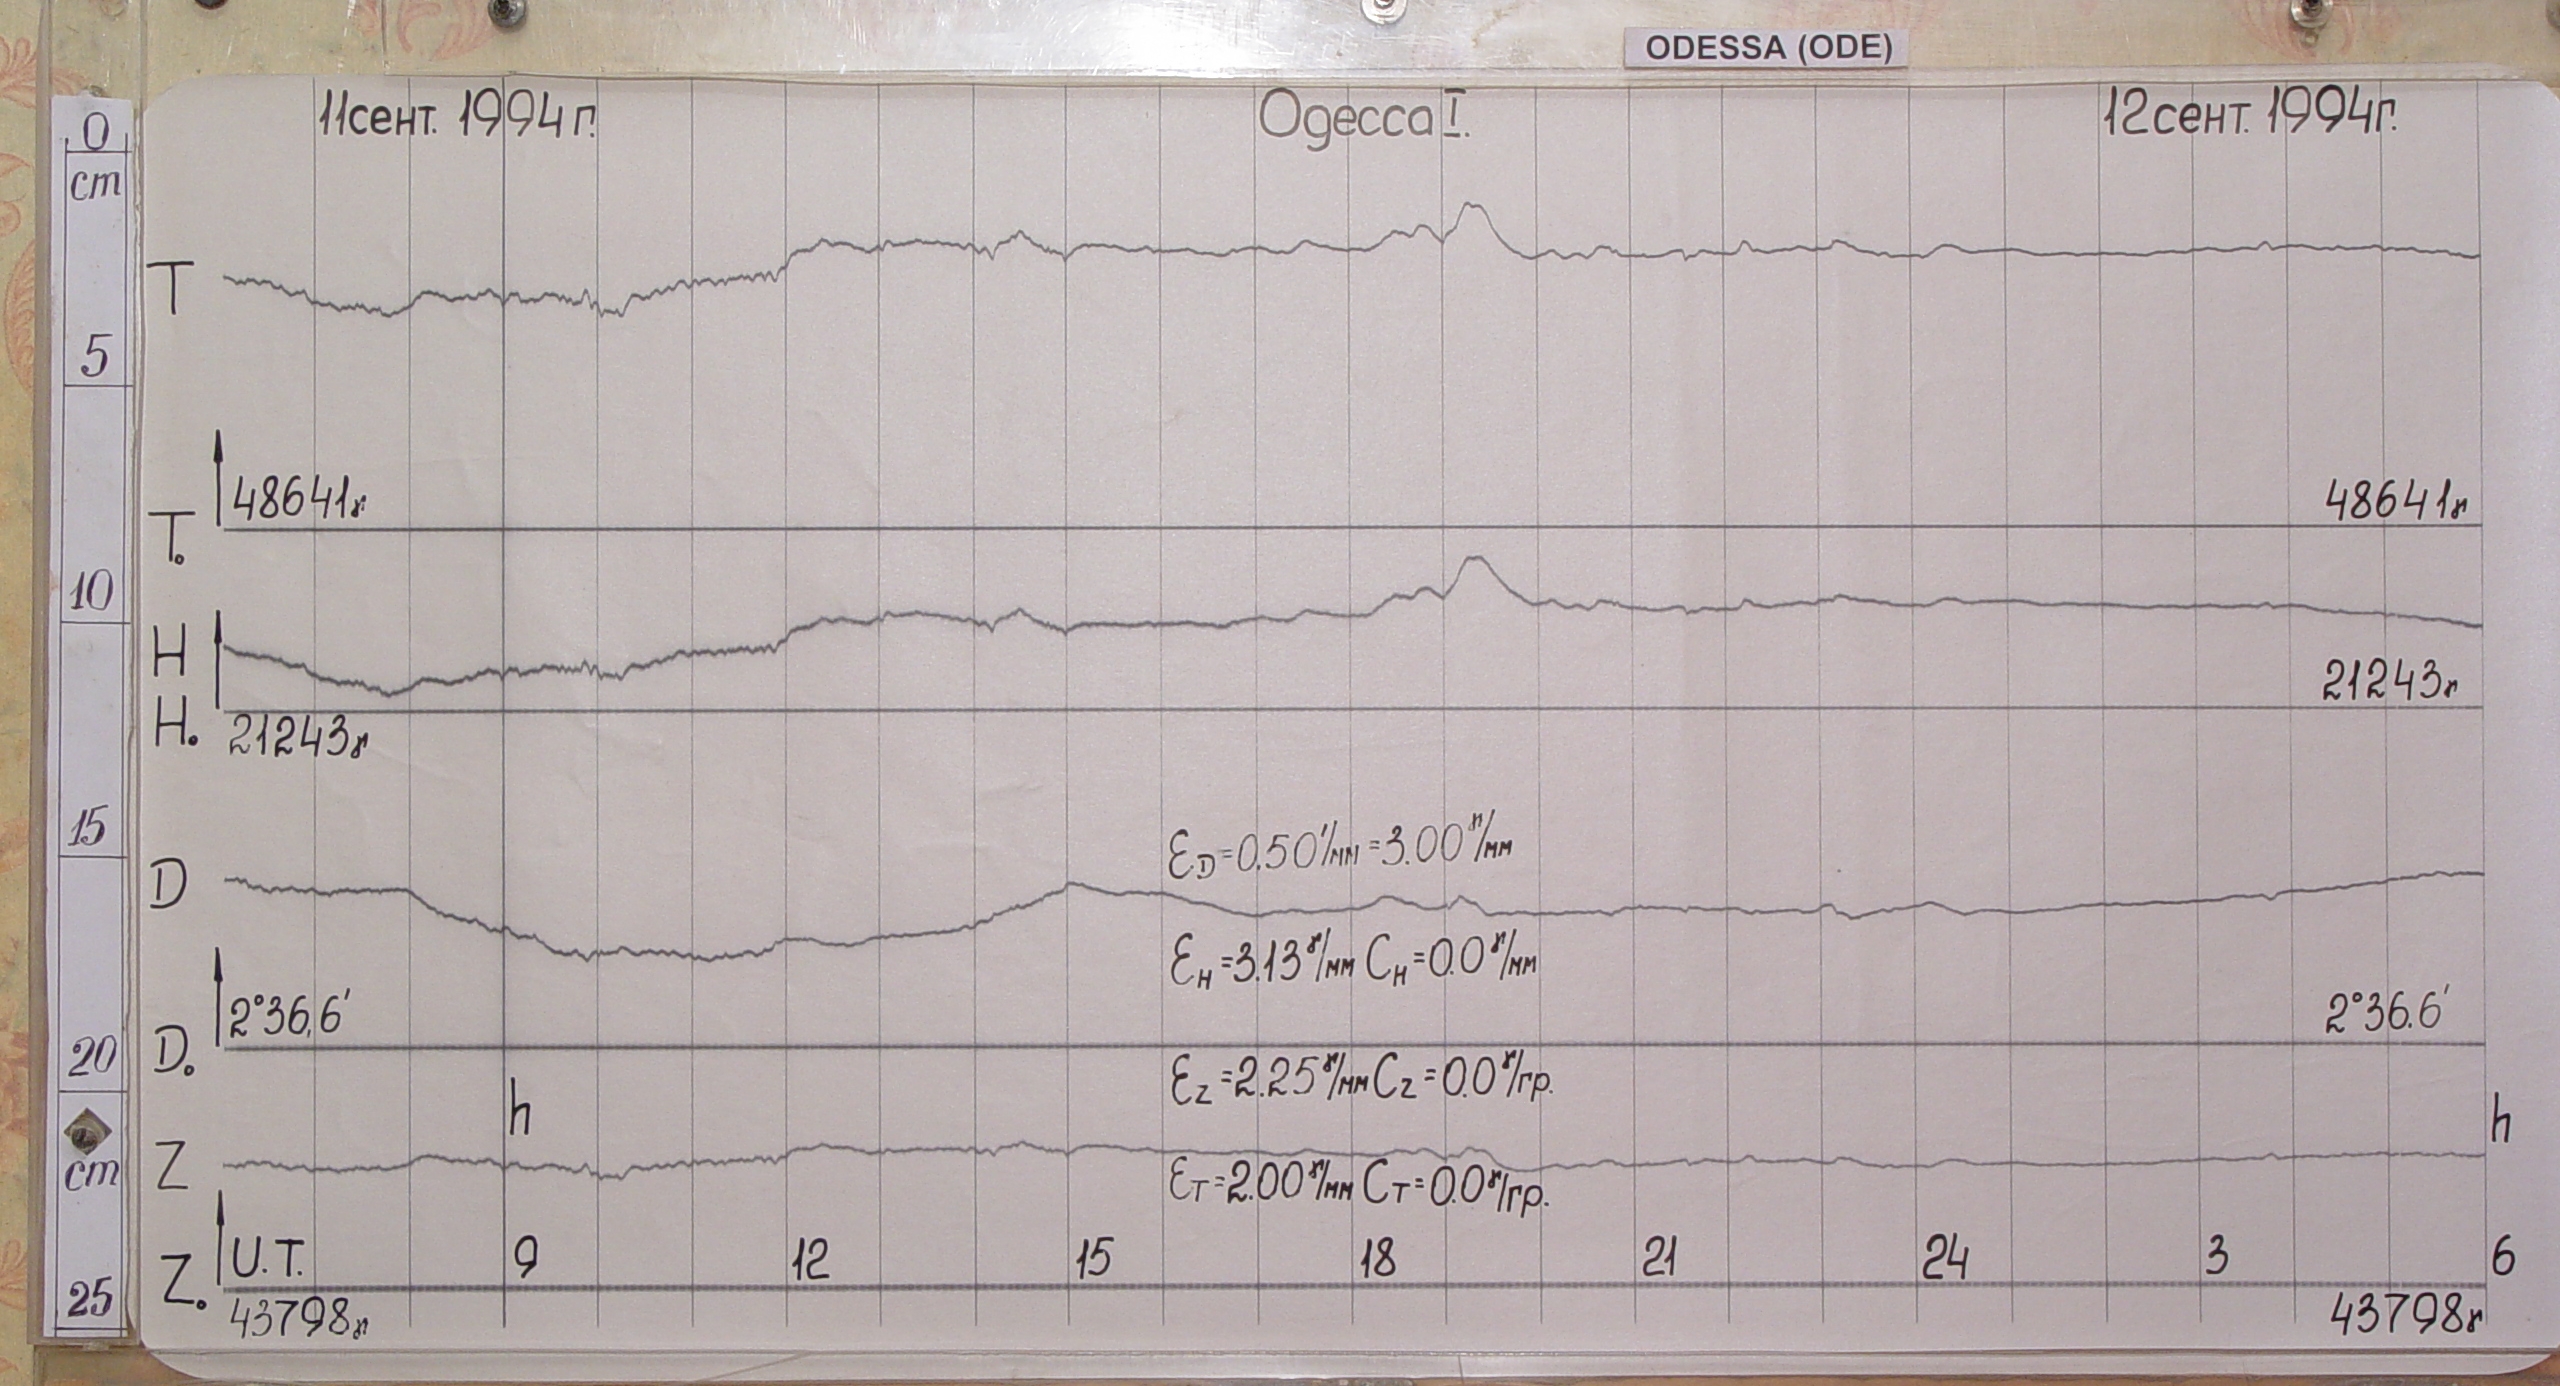 ODESSA (ODE)
11сент. 1994г. Одесса I. 12сент. 1994г.
0
cm
5
10
15
20
cm
25
T
48641γ 48641γ
T.
H
21243γ
H.
21243γ
D
Ɛ_D=0.50'/мм=3.00γ/мм
Ɛ_H=3.13γ/мм C_H=0.0γ/мм
2°36,6' 2°36.6'
D.
Ɛ_Z=2.25γ/мм C_Z=0.0γ/гр.
h h
Z
Ɛ_T=2.00γ/мм C_T=0.0γ/гр.
U.T. 9 12 15 18 21 24 3 6
Z.
43798γ 43798γ